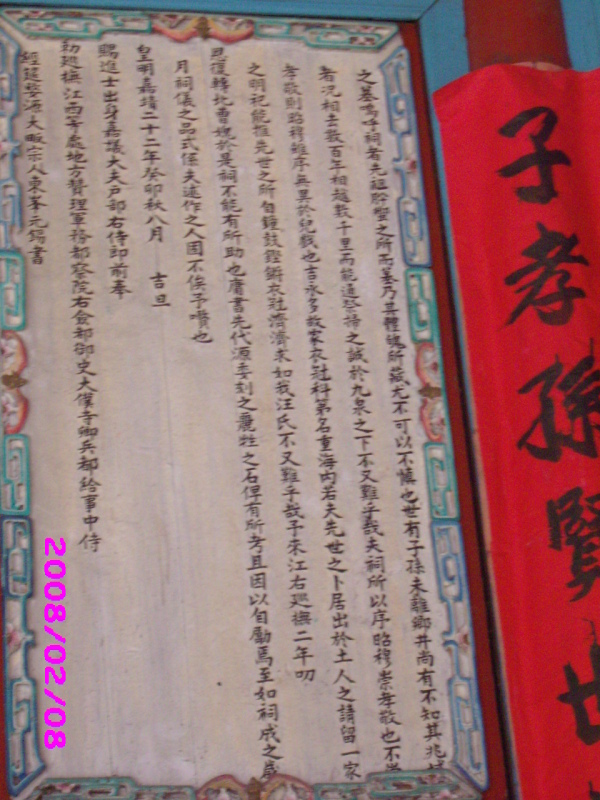 子孝孫賢世
之墓嗚呼祠者先祖所塑之所而墓乃其體魄所藏尤不可以不慎也世有子孫未離鄉井尚有不知其兆
者況相去數百年相越數千里而能通祭掃之誠於九泉之下不又難乎哉夫祠所以序昭穆崇孝敬也不
孝敬則昭穆雖序無異於兒戲也吉永多故家衣冠科第名重海内若夫先世之卜居出於土人之請留一家
之明祀能推先世之所自鐘鼓鏗鏘衣冠濟濟求如我汪氏不又難乎哉予來江右廵撫二年叨
恩復轉北曹媿於是祠不能有所助也廑書先代源委刻之麗牲之石俾有所考且因以自勵焉至如祠成之歲
月祠儀之品式係夫述作之人因不俟予囋也
皇明嘉靖二十二年癸卯秋八月 吉旦
賜進士出身嘉議大夫戶部右侍郎前奉
勑廵撫江西等處地方贊理軍務都察院右僉都御史大僕寺卿兵部給事中侍
經筵婺源大畈宗人東峯元錫書
2008/02/08